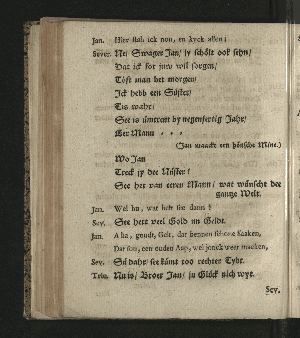 Jan. Hier stah ick nou, en kyck allen;
Sever. Ne; Swager Jan/ sy schölt ook sehn/
Dat ick for juw wil sorgen/
Töft man bet morgen/
Ick hebb een Süster/
Tis wahr/
See is umtrent by negenfertig Jahr/
Eer Mann - - -
(Jan maackt een hönsche Mine.)
Wo Jan
Treck jy dee Nüster!
See het van eeren Mann/ wat wünscht dee
gantze Welt.
Jan. Wel hu, wat heft see dann?
Sev. See hett veel Gold un Geldt.
Jan. A ha, gaudt, Gelt, dat bennen schöne Saaken,
Dat sou, een ouden Aap, wel jonck weer maeken,
Sev. Sü dahr/ see kümt too rechter Tydt.
Trin. Nu is/ Broer Jan/ ju Glöck nich wyt.
Sev.